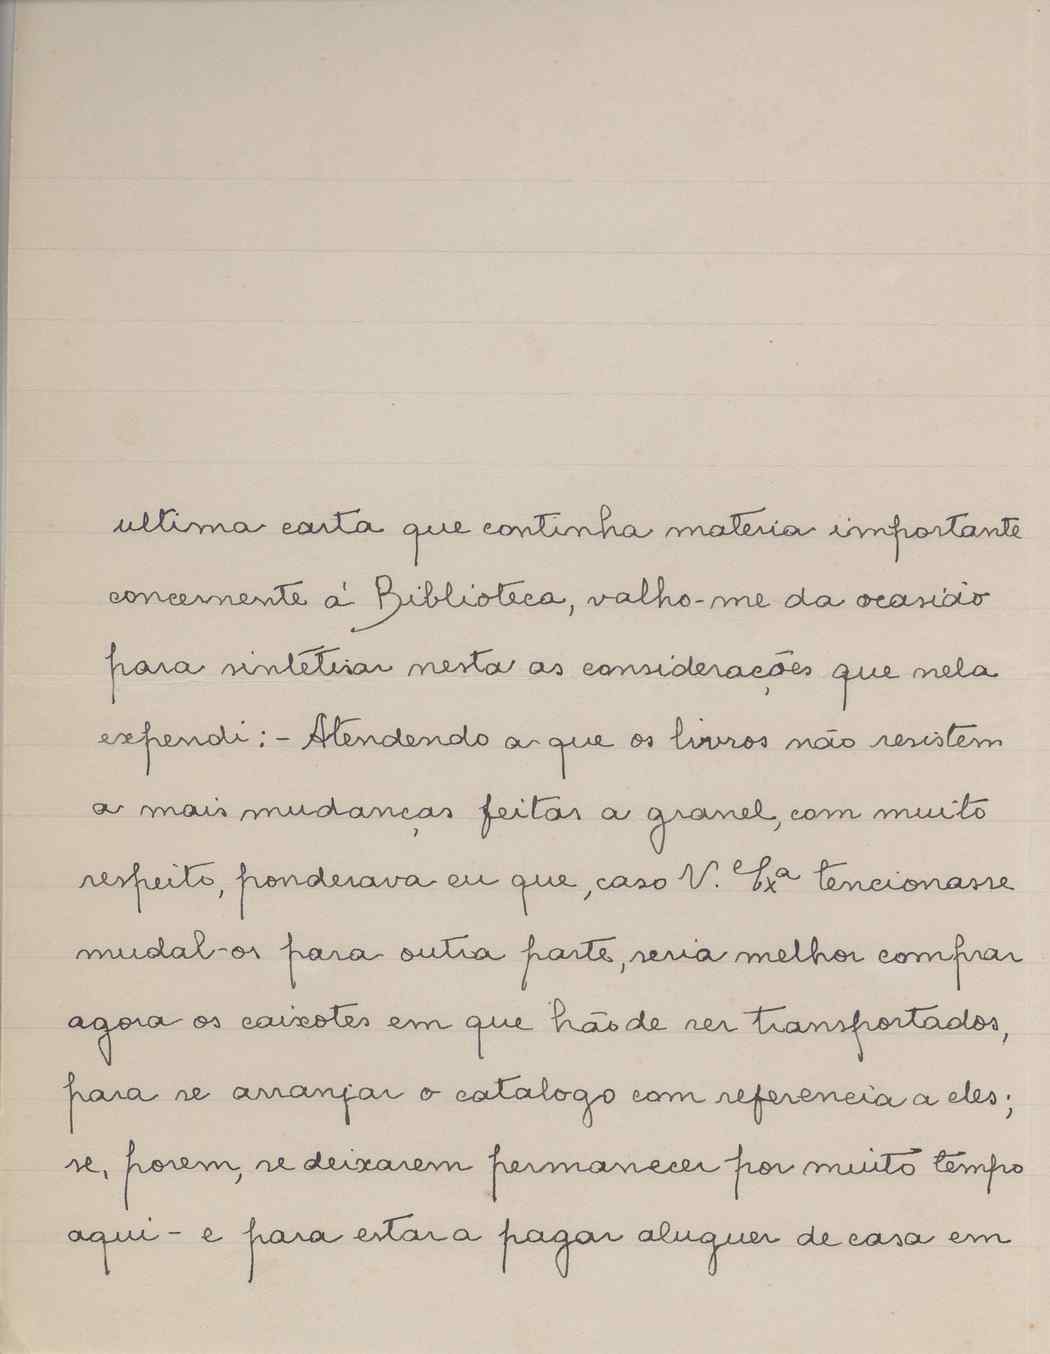 ultima carta que continha materia importante
concernente á Biblioteca, valho-me da ocasião
para sintétisar nesta as considerações que nela
expendi: - Atendendo a que os livros não resistem
a mais mudanças feitas a granel, com muito
respeito, ponderava eu que, caso V. Exª tencionasse
mudal-os para outra parte, seria melhor comprar
agora os caixotes em que hão de ser transportados,
para se arranjar o catalogo com referencia a eles;
se, porem, se deixarem permanecer por muito tempo
aqui - e para estar a pagar aluguer de casa em